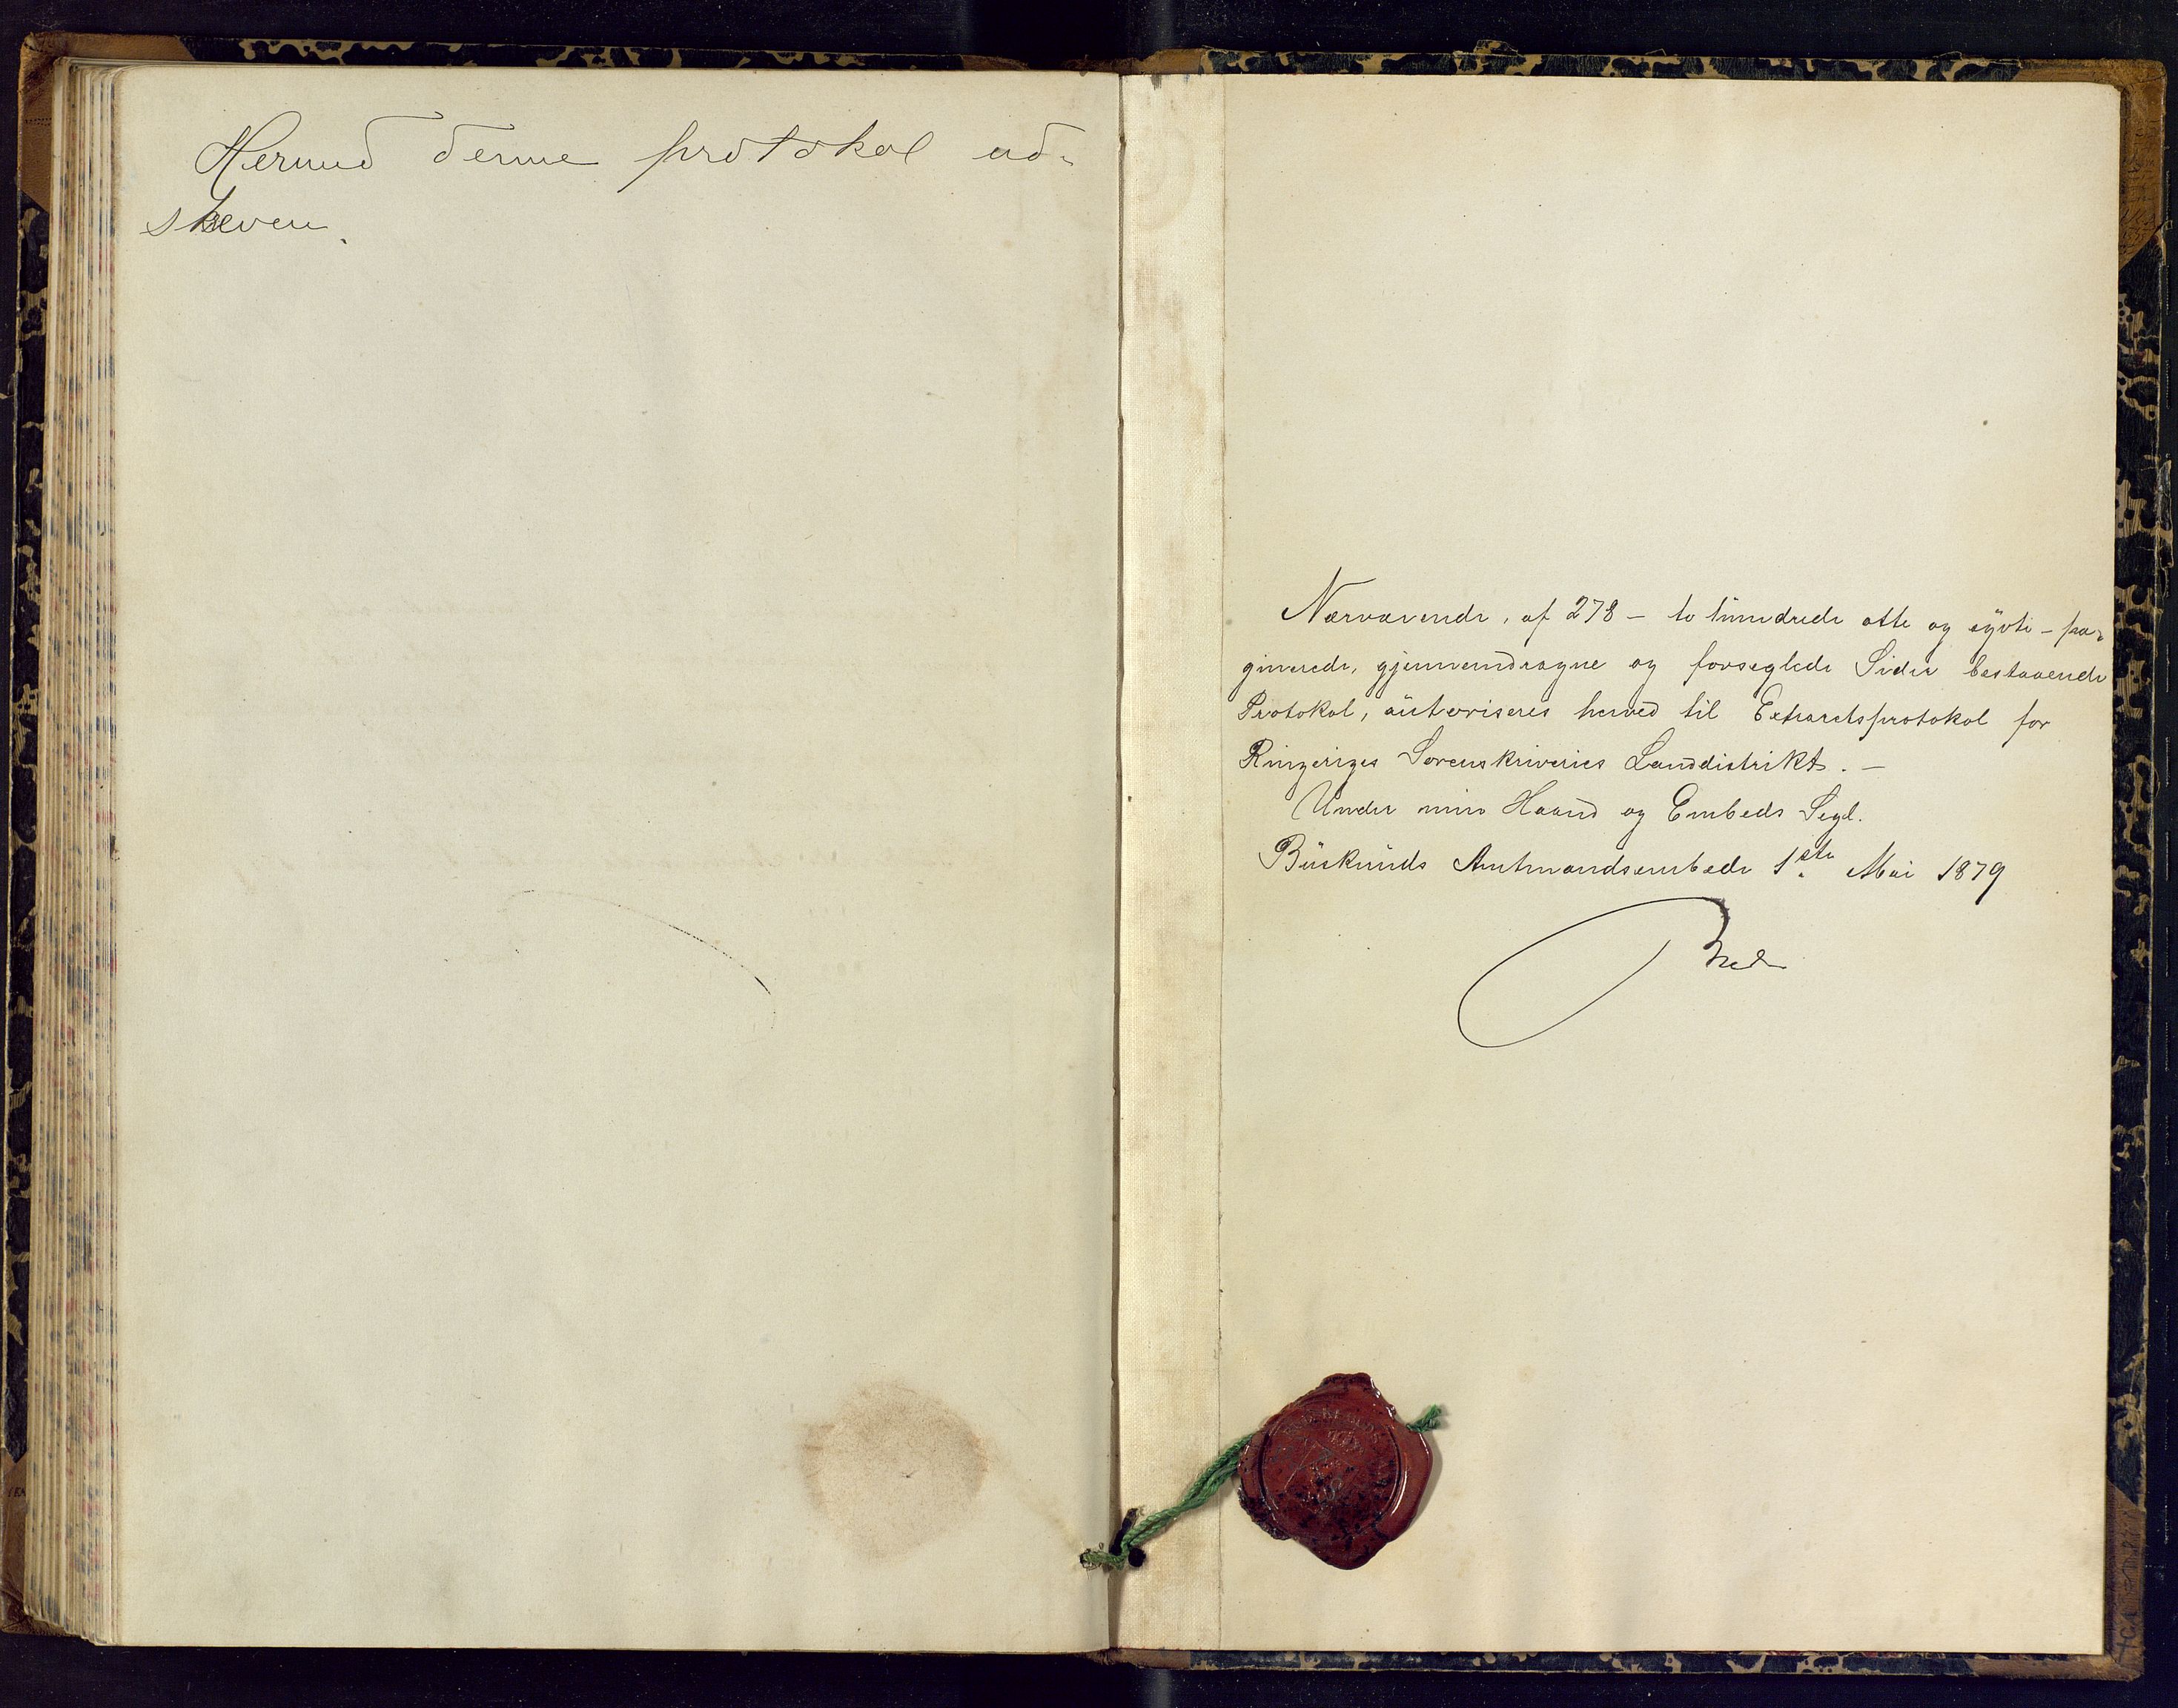 Hermed denne protokol ud-
skreven.
Nærværende, af 278 - to hundrede otte og sytti - pa-
ginerede, gjennemdragne og forseglede Sider bestaaende
Protokol, autoriseres herved til Extraretsprotokol for
Ringeriges Sorenskriveries Landdistrikt. -
Under min Haand og Embeds Segl.
Buskeruds Amtmandsembede 1ste Mai 1879